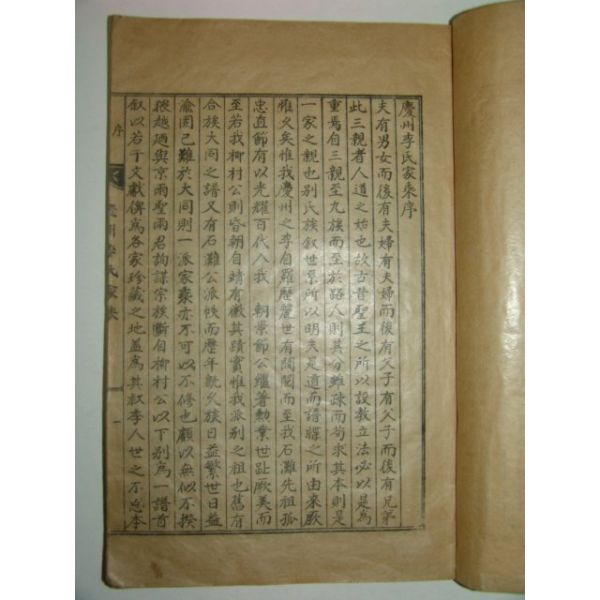 慶州李氏家乘序
夫有男女而後有夫婦有夫婦而後有父子有父子而後有兄弟
此三親者人道之始也故古昔聖王之所以設敎立法必以是爲
重焉自三親至九族而至於路人則其分雖疎而苟求其本則是
一家之親也別氏族叙世系所以明夫是道而譜牒之所由來厥
惟久矣惟我慶州之李自羅歷麗世有閥閱而至我石灘先祖孤
忠直節有以光耀百代入我 朝景節公繼著勳業世趾厥美而
至若我柳村公則昏朝自靖有徽其蹟實惟我派別之祖也舊有
合族大同之譜又有石灘公派帙而歷年旣久族日益繁世日益
渝固已難於大同則一派家乘亦不可以不修也顧以無似不揆
越廼與京雨聖雨君詢謀宗族斷自柳村公以下別爲一譜首
叙以若干文獻俾爲各家珍藏之地盖爲其叔季人世之不忘本
序
慶州李氏家乘
一